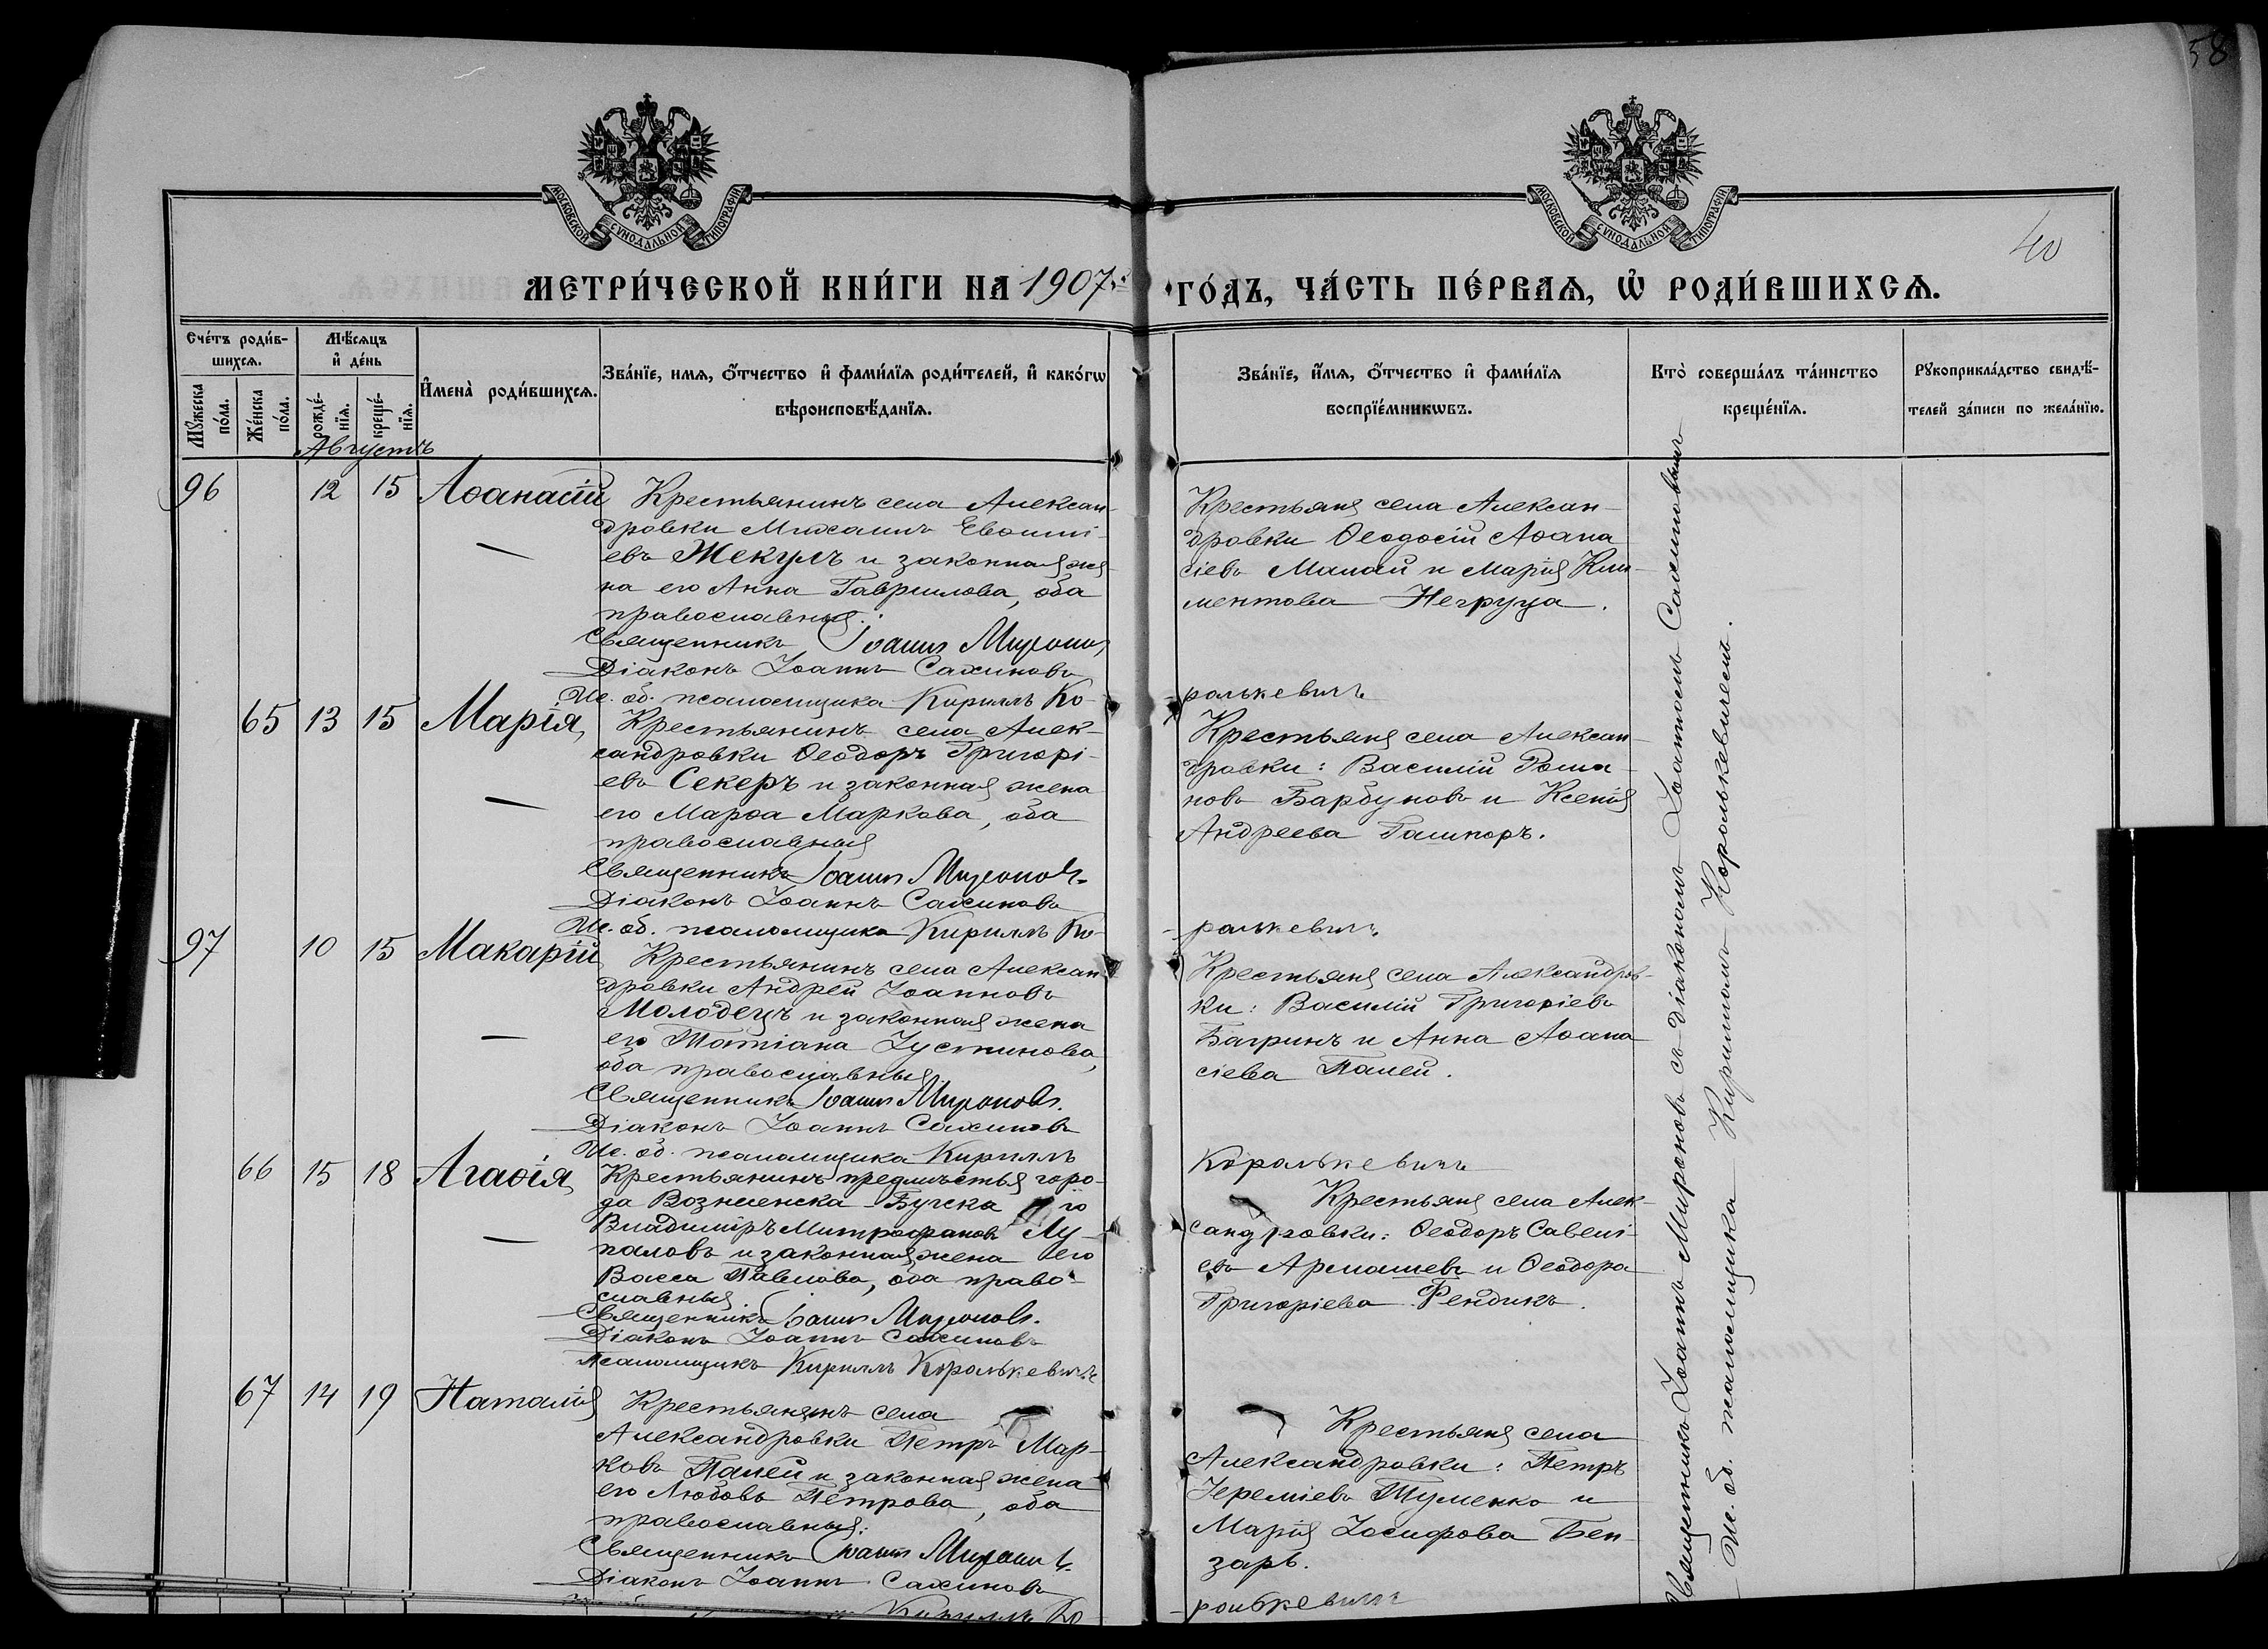 58
40
МОСКОВСКОЙ СѴНОДАЛЬНОЙ ТИПОГРАФІИ
МОСКОВСКОЙ СѴНОДАЛЬНОЙ ТИПОГРАФІИ
МЕТРИ́ЧЕСКОЙ КНИ́ГИ НА 1907й ГО́ДЪ, ЧА́СТЬ ПЕ́РВАѦ, Ѡ҆ РОДИ́ВШИХСѦ.
Сче́тъ роди́в-
шихсѧ.
Мꙋ́жеска по́ла.
Же́нска по́ла.
Мѣ́сѧцъ
и҆ де́нь
рожде́-
нїѧ.
креще́-
нїѧ.
И҆мена̀ роди́вшихсѧ.
Зва́нїе, имѧ, ѻ҆́тчество и҆ фами́лїѧ роди́телей, и҆ како́гѡ
вѣроисповѣ́данїѧ.
Зва́нїе, и҆́мѧ, ѻ҆́тчество и҆ фами́лїѧ
воспрїе́мникѡвъ.
Кто̀ соверша́лъ та́инство
креще́нїѧ.
Рꙋкоприкла́дство свидѣ́-
телей за́писи по жела́нїю.
Августъ
96 12 15 Аѳанасій
Крестьянинъ села Алексан-
дровки Михаилъ Евѳимі-
евъ Жекулъ и законная же-
на его Анна Гавриилова, оба
православныя.
Священникъ Іоаннъ Мироновъ
Діаконъ Іоаннъ Сахиновъ
Ис. об. псаломщика Кириллъ Ко-
Крестьяне села Алексан-
дровки Ѳеодосій Аѳана
сіевъ Малай и Марія Кли-
ментова Негруца.
ролькевичъ
65 13 15 Марія
Крестьянинъ села Алек-
сандровки Ѳеодоръ Григорі-
евъ Секеръ и законная жена
его Марѳа Маркова, оба
православныя
Священникъ Іоаннъ Мироновъ
Діаконъ Іоаннъ Сахиновъ
Ис. об. псаломщика Кириллъ Ко-
Крестьяне села Алексан-
дровки: Василій Рома-
новъ Барбуновъ и Ксенія
Андреева Гашпоръ.
ролькевичъ
97 10 15 Макарій
Крестьянинъ села Алексан-
дровки Андрей Іоанновъ
Молодецъ и законная жена
его Татіана Іустинова,
оба православныя
Священникъ Іоаннъ Мироновъ.
Діаконъ Іоаннъ Сахиновъ
Ис. об. псаломщика Кириллъ
Крестьяне села Александров-
ки: Василій Григоріевъ
Багринъ и Анна Аѳана
сіева Палей.
Королькевичъ
66 15 18 Агаѳія
Крестьянинъ предмѣстья горо-
да Вознесенска
Владиміръ Митрофановъ Лу-
паловъ и законная жена его
Васса Павлова, оба право-
славныя
Священникъ Іоаннъ Мироновъ.
Діаконъ Іоаннъ Сахиновъ
Псаломщикъ Кириллъ Королькевичъ
Крестьяне села Алек-
сандровки: Ѳеодоръ Савелі-
евъ Армашевъ и Ѳеодора
Григоріева Фендикъ.
67 14 19 Наталія
Крестьянинъ села
Александровки Петръ Мар-
ковъ Палей и законная жена
его Любовь Петрова, оба
православныя.
Священникъ Іоаннъ Мироновъ
Діаконъ Іоаннъ Сахиновъ
Кириллъ Ко
Крестьяне села
Александровки: Петръ
Іереміевъ Туменко и
Марія Іосифова Бен-
зарь.
ролькевичъ
Священникъ Іоаннъ Мироновъ съ діакономъ Іоанномъ Сахиновымъ
Ис. об. псаломщика Кирилломъ Королькевичемъ.